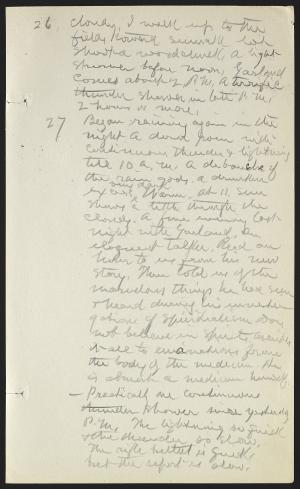 26, cloudy, I walk up to the
fields toward sunset
Shot a woodchuck, A light
shower before noon, Garland
comes about 2 P.M. A terrific
thunder shower in late P.M.
2 hours or more,
27 Began raining again in the
night A down pour with
continuous thunder & lightning
till 10 a.m. A debauch of
the rain gods. a drunken
Warm, at 11. sun
shines a little through the
clouds. A fine evening last
night with Garland, an
eloquent talker, Read an
to us from his new
story, Then told us of the
marvelous things he has seen
& heard during his investi-
gations of Spiritualism Does
not believe in spirits,
it all to emanations from
the body of the medium. He
is almost a medium himself.
— Practically one continuous
thunder shower since yesterday
P.M. The lightning so quick
& the thunder so slow.
The rifle bullet is quick,
but the report is slow.